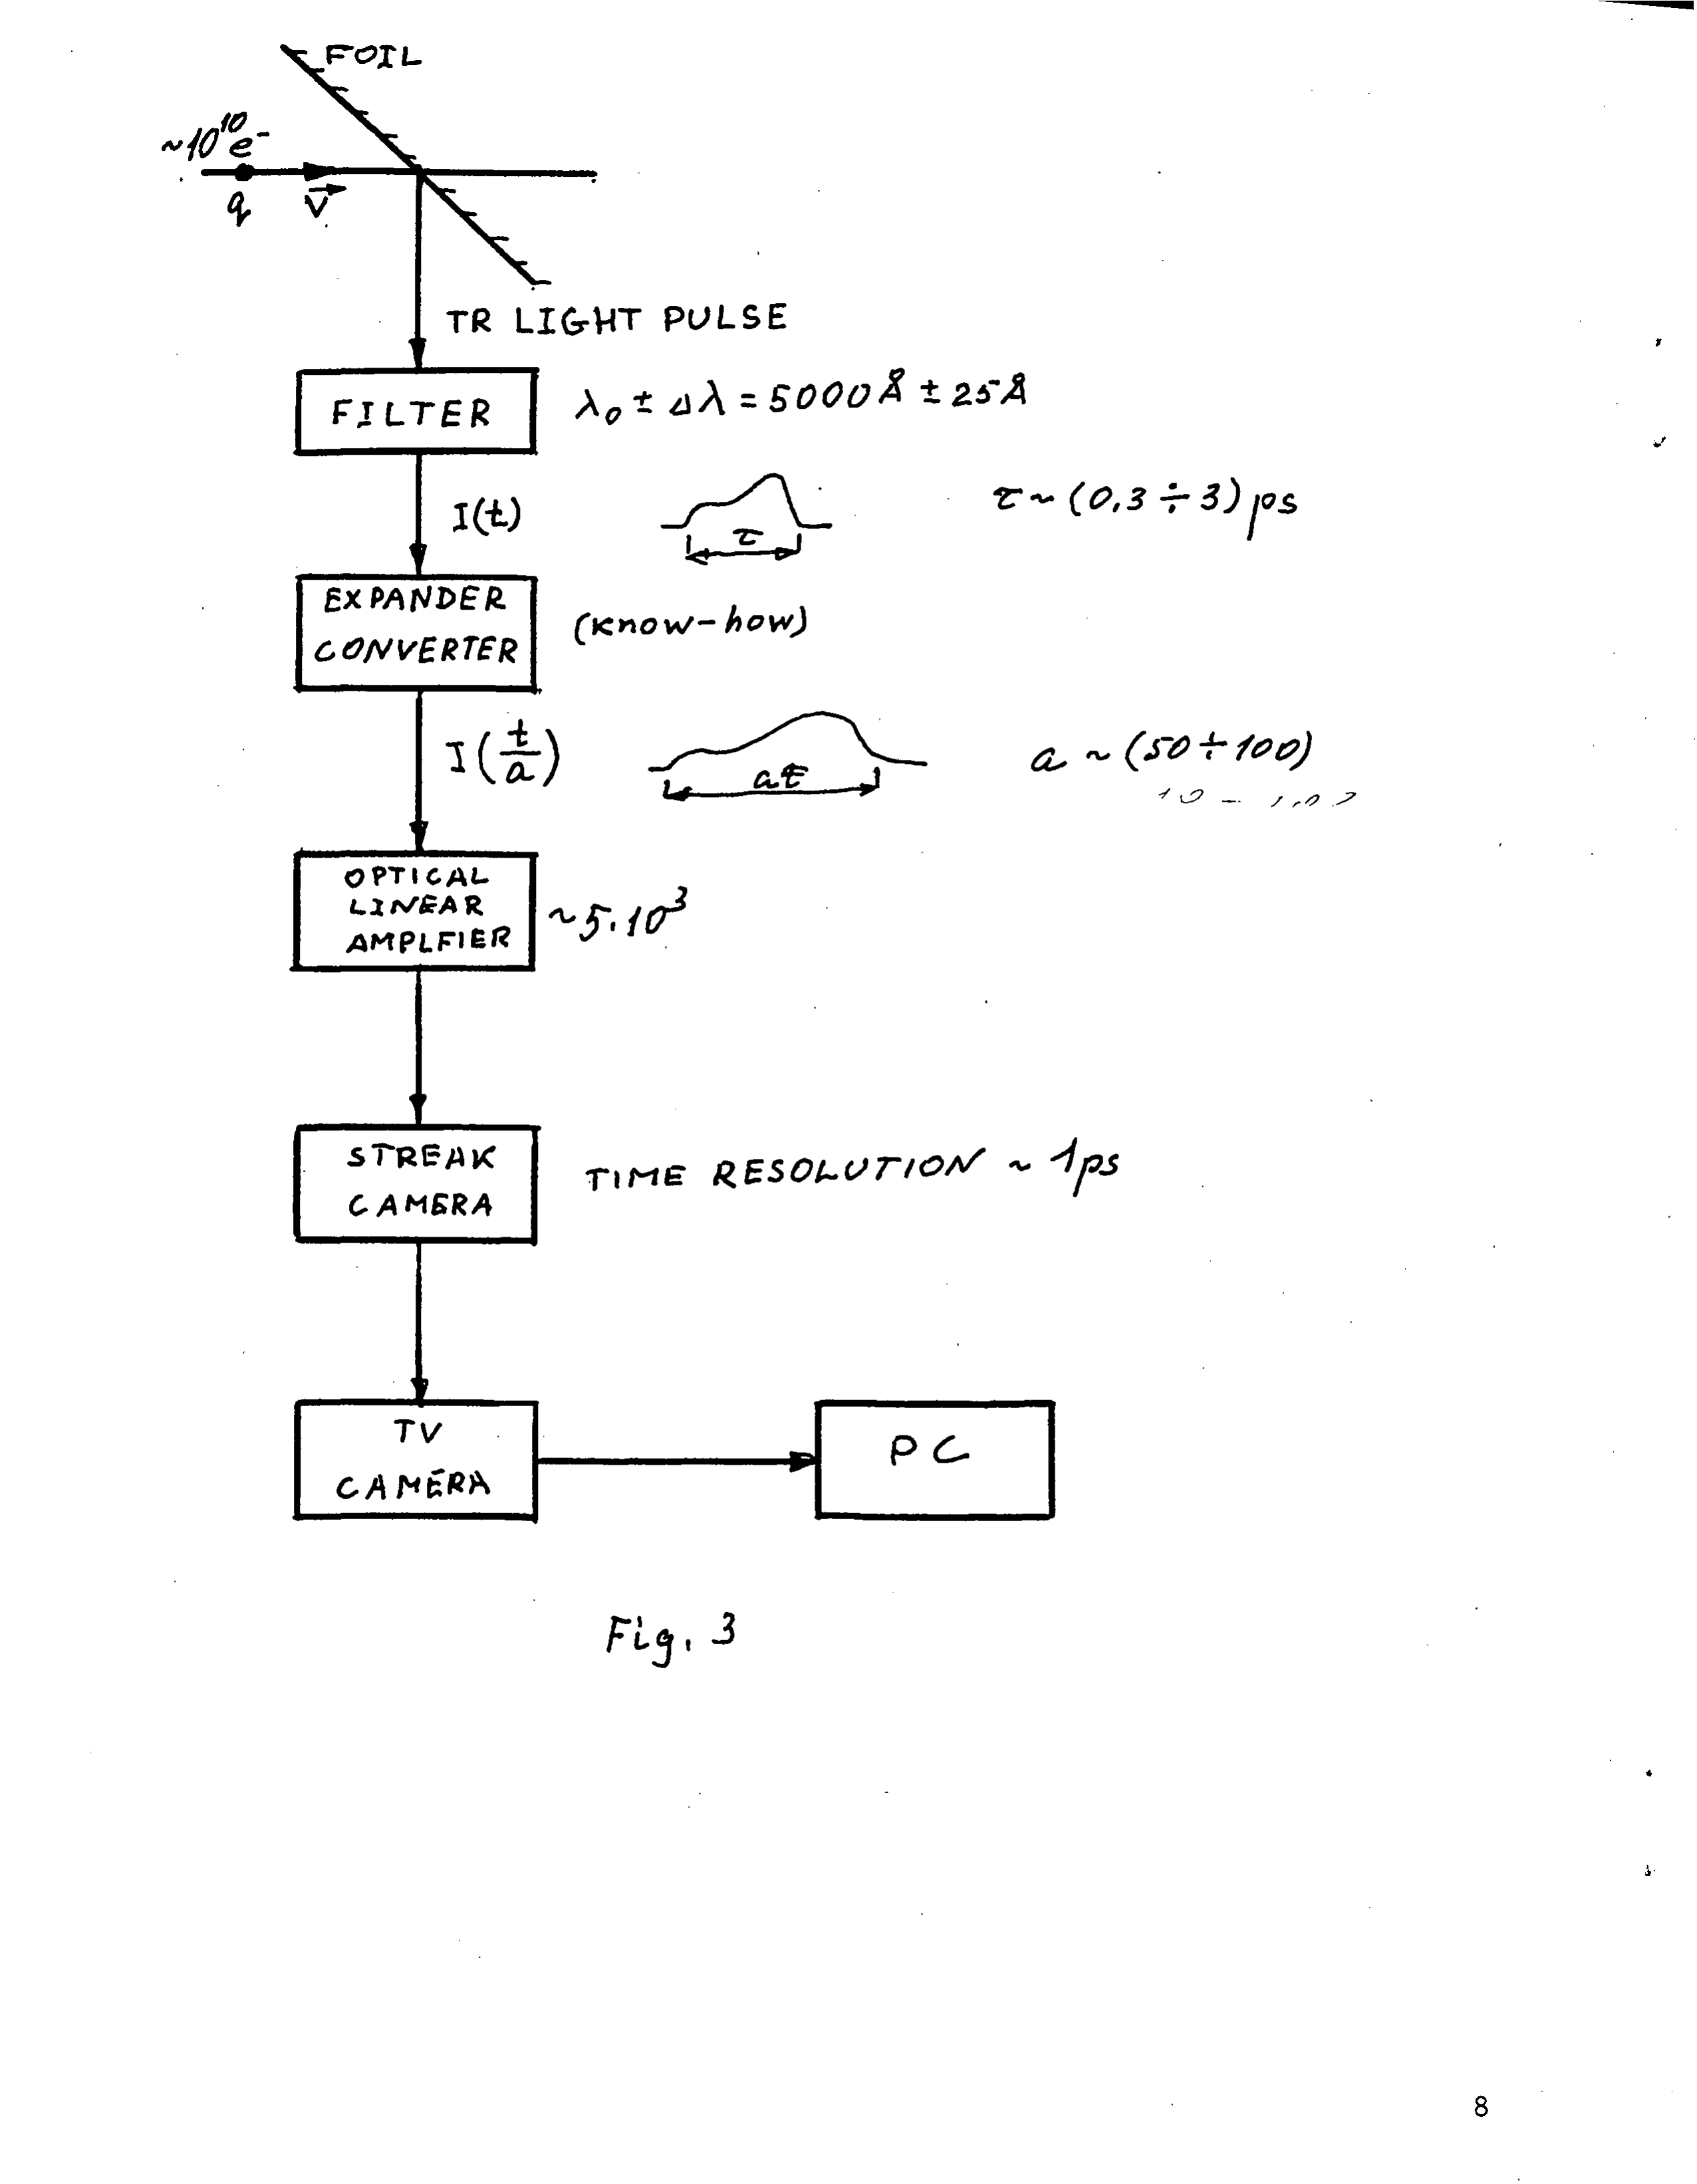 FOIL
~10^10 e^-
q
v⃗
TR LIGHT PULSE
FILTER
λ₀ ± Δλ = 5000 Å ± 25 Å
I(t)
τ
τ ~ (0.3 ÷ 3) ps
EXPANDER
CONVERTER
(know-how)
I(t/a)
aτ
a ~ (50 ÷ 100)
OPTICAL
LINEAR
AMPLFIER
~5·10^3
STREAK
CAMERA
TIME RESOLUTION ~ 1ps
TV
CAMERA
PC
Fig. 3
8